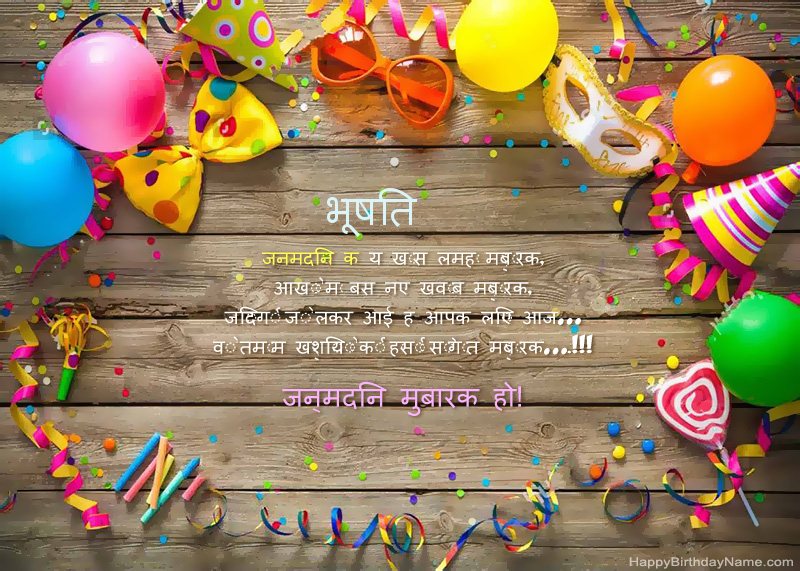 भूषति
जनमदनि क य खास लमहा मबारक,
आखों में बस नए खवाब मबारक,
जदिगी जो लेकर आई ह आपक लएि आज...
वो तमाम खशयिों की हसीं सौगात मबारक...!!!
जन्मदनि मुबारक हो!
HappyBirthdayName.com